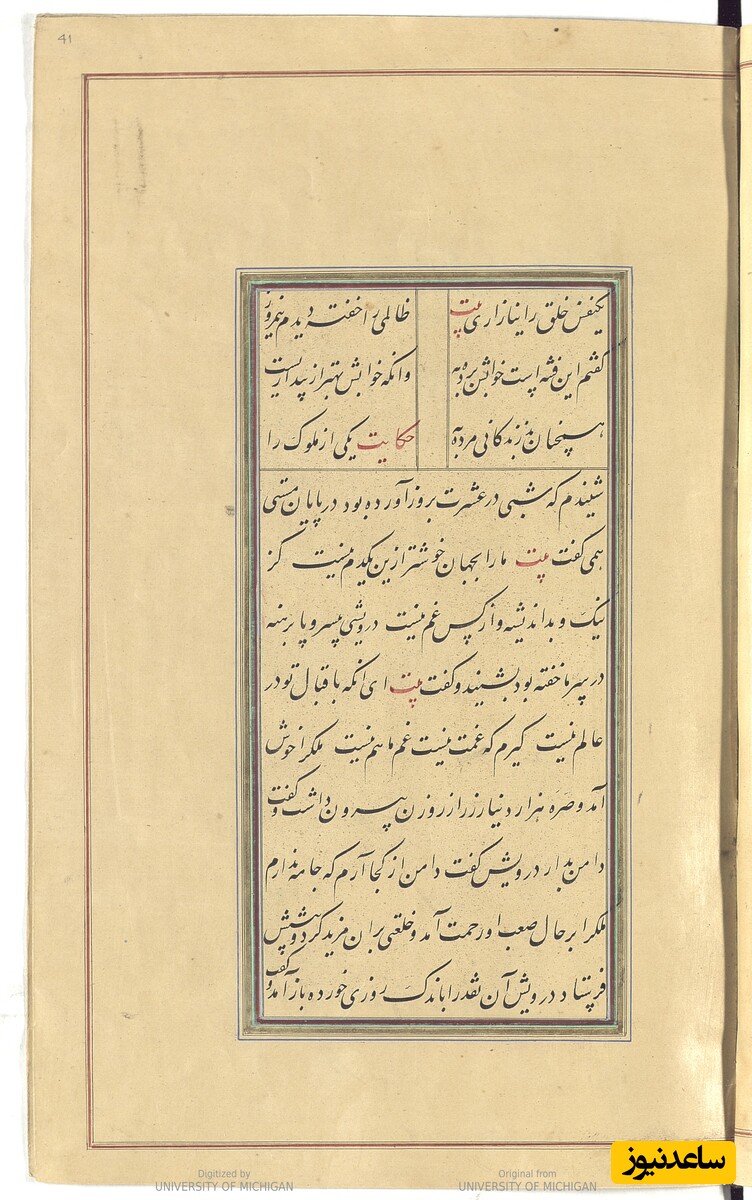 41
یکنفس خلق را نیازاری بیت ظالمی را خفته دیدم نیمروز
گفتم این فتنه است خوابش برده به وانکه خوابش بهتر از بیداریست
همچنان بد زندکانی مرده به حکایت یکی از ملوک را
شنیدم که شبی در عشرت بروز آورده بود در پایان مستی
همی گفت بیت ما را بجهان خوشتر ازین یکدم نیست کز
نیک و بد اندیشه و از کس غم نیست درویشی بیسر و پا برهنه
در سرما خفته بود بشنید و گفت بیت ای انکه باقبال تو در
عالم نیست گیرم که غمت نیست غم ما هم نیست ملکرا خوش
آمد و صره هزار دینار زر از روزن بیرون داشت و گفت
دامن بدار درویش گفت دامن از کجا آرم که جامه ندارم
ملکرا بر حال صعب او رحمت آمد و خلعتی بران مزید کرد و پیشش
فرستاد درویش آن نقد را باندک روزی خورده باز آمد و گفت
Digitized by
UNIVERSITY OF MICHIGAN
Original from
UNIVERSITY OF MICHIGAN
ساعدنیوز